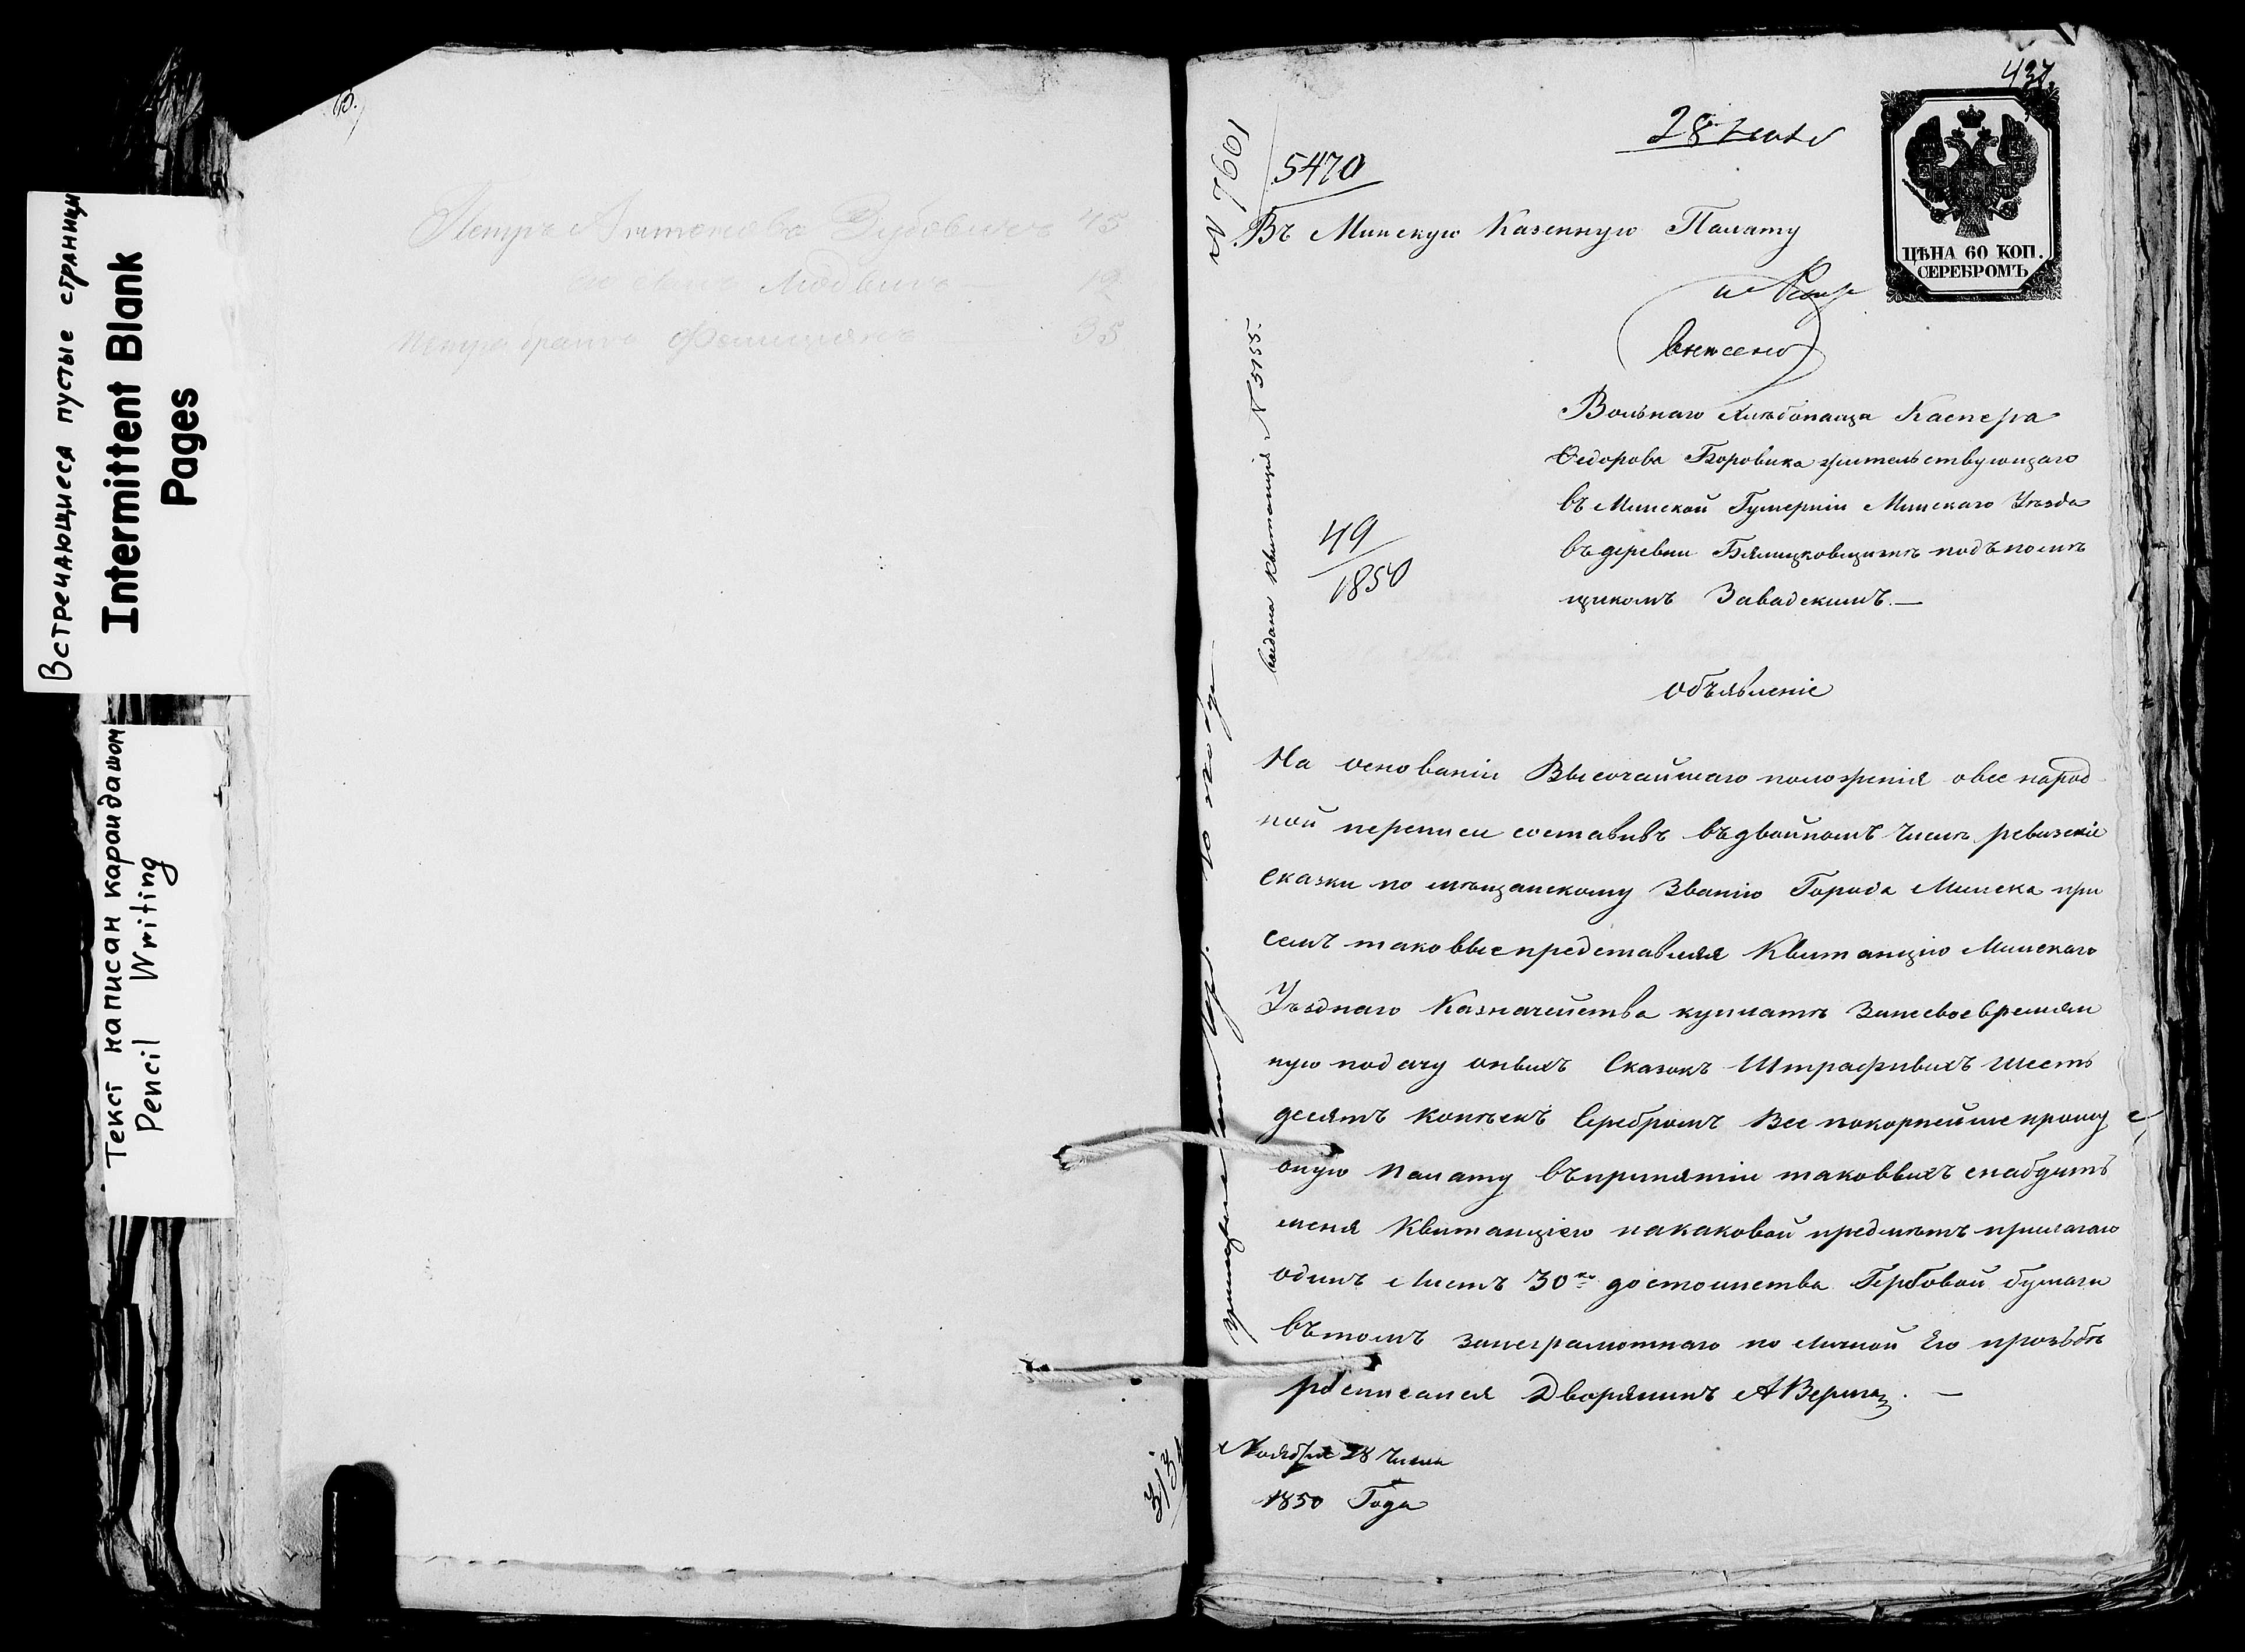 Встречающиеся пустые страницы
Intermittent Blank
Pages
Текст написан карандашом
Pencil Writing
Петръ Антоновъ Дубовикъ 45
Людвигъ — 12
Петра братъ 35
437.
28 Ноя
N 7601
5470
ЦѢНА 60 КОП.
СЕРЕБРОМЪ
Въ Минскую Казенную Палату
внесено
выдана квитанція N 5155.
49
1850
Вольнаго хлѣбопашца Каспера
Федорова Боровика жительствующаго
въ Минской Губерніи Минскаго Уѣзда
въ деревни подъ помѣ
щикомъ Завадскимъ. —
объявленіе
На основаніи Высочайшаго положенія о все народ
ной переписи составивъ въ двойномъ числѣ ревизскіе
сказки по мѣщанскому Званію Города Минска при
семъ таковые представляя Квитанцію Минскаго
Уѣзднаго Казначейства куплатѣ за несвоевремян
ную подачу оныхъ Сказокъ Штрафныхъ шесть
десятъ копѣекъ Серебромъ Все покорнейше прошу
оную Палату въ принятіи таковыхъ снабдить
меня Квитанціею на каковой предмѣтъ прилагаю
одинъ Листъ 30 ко достоинства Гербовой бумаги
въ томъ за неграмотнаго по личной Его прозьбѣ
росписался Дворянинъ —
Ноября 28 числа
1850 Года